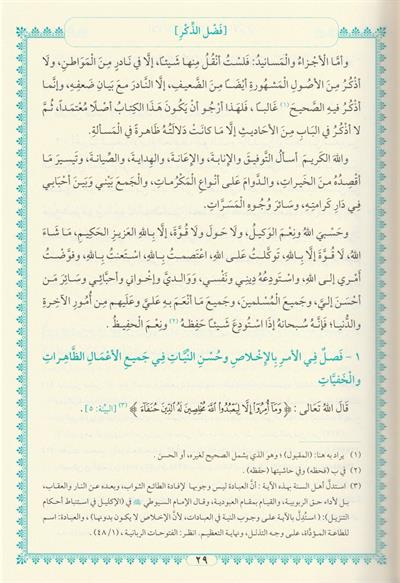 [فَضْل الذِّكْرِ]
وأمَّا الأَجْزاءُ والْمَسانِيدُ: فَلَسْتُ أَنْقُلُ مِنها شَيئًا، إلَّا في نادِرٍ مِنَ المَواطِنِ، ولا
أَذْكُرُ مِنَ الأُصولِ المَشهُورةِ أَيْضًا مِنَ الضَّعِيفِ، إلَّا النَّادرَ مَعَ بَيانِ ضَعفِهِ، وإنَّما
أَذْكُرُ فيهِ الصَّحيحَ (١) غالبًا ، فَلهَذا أَرْجُو أنْ يَكُونَ هَذا الكِتابُ أصْلًا مُعْتمَدًا، ثُمَّ لَا
أذكُرُ في البَابِ مِنَ الأحادِيثِ إلَّا مَا كانَتْ دَلالَتُهُ ظاهِرةً في المَسألةِ.
واللهَ الكَريمَ أَسألُ التَّوفِيقَ والإنابةَ، والإعَانةَ، والهِدايةَ، والصِّيانةَ، وتَيسيرَ مَا
أَقْصِدُهُ مِنَ الخَيراتِ، والدَّوامَ عَلى أنْواعِ المَكْرُماتِ، والجَمعَ بَيْني وبَينَ أحْبَابي
في دَارِ كَرامتِهِ، وسَائرَ وُجُوهِ المَسَرَّاتِ.
وحَسْبيَ اللهُ ونِعْمَ الوَكيلُ، ولا حَولَ ولَا قُوَّةَ، إلَّا بِاللهِ العَزيزِ الحَكِيمِ، مَا شَاءَ
اللهُ، لَا قُوَّةَ إلَّا بِاللهِ، تَوكَّلتُ عَلى اللهِ، اعْتصَمتُ بِاللهِ، اسْتعَنْتُ بِاللهِ، وفَوَّضْتُ
أَمْري إلى اللهِ، واسْتَودَعتُهُ دِيني ونَفْسي، وَوَالديَّ وإخْواني وأحِبَّائي وسَائرَ مَن
أحْسَنَ إليَّ، وجَميعَ المُسلمينَ، وجَميعَ مَا أنْعَمَ بهِ عَليَّ وعَلَيهِم مِن أُمُورِ الآخِرةِ
والدُّنيا؛ فَإنَّهُ سُبحانَهُ إذَا اسْتُودِعَ شَيئًا حَفِظَهُ (٢) ونِعْمَ الحَفيظُ .
١ - فَصلٌ فِي الأَمرِ بِالإِخْلاصِ وحُسْنِ النِّيَّاتِ فِي جَميعِ الأَعْمَالِ الظَّاهِراتِ
والْخَفيَّاتِ
قَالَ اللهُ تَعَالى : ﴿ وَمَآ أُمِرُوٓاْ إِلَّا لِيَعْبُدُواْ ٱللَّهَ مُخْلِصِينَ لَهُ ٱلدِّينَ حُنَفَآءَ ﴾ (٣) [البيِّنة: ٥] .
(١) يراد به هنا: (المقبول) ؛ وهو الذي يشمل الصحيح لغيره، أو الحسن .
(٢) في ب (فحفظه) وفي حاشيتها (حفظه) .
(٣) استدلَّ أهل السنة بهذه الآية : أنَّ العبادة ليس وجوبها لإفادة الطائع الثواب، وبعده عن النار والعقاب،
بل لأداء حق الربوبية، والقيام بمقام العبودية، وقال الإمام السيوطي في (الإكليل في استنباط أحكام
التنزيل): (استُدِلَّ بالآية على وجوب النية في العبادات، لأنَّ الإخلاص لا يكون بدونها) ، والعبادة: اسم
للطاعة المؤدَّاة، على وجه التذلل، ونهاية التعظيم. انظر: الفتوحات الربانية، (٤٨/١).
٢٩